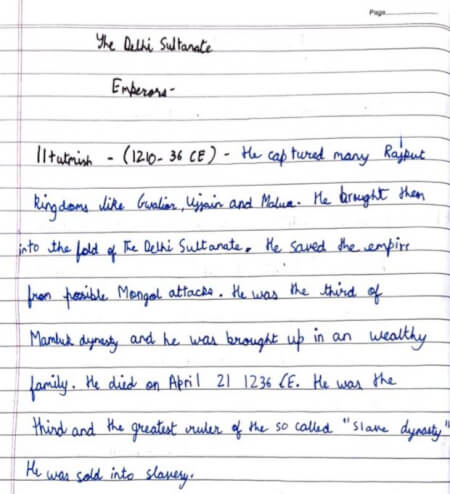 Page
The Delhi Sultanate
Emperors-
Iltutmish - (1210-36 CE) - He captured many Rajput
kingdoms like Gwalior, Ujjain and Malwa. He brought them
into the fold of The Delhi Sultanate. He saved the empire
from possible Mongol attacks. He was the third of
Mamluk dynasty and he was brought up in an wealthy
family. He died on April 21 1236 CE. He was the
third and the greatest ruler of the so called "slave dynasty"
He was sold into slavery.